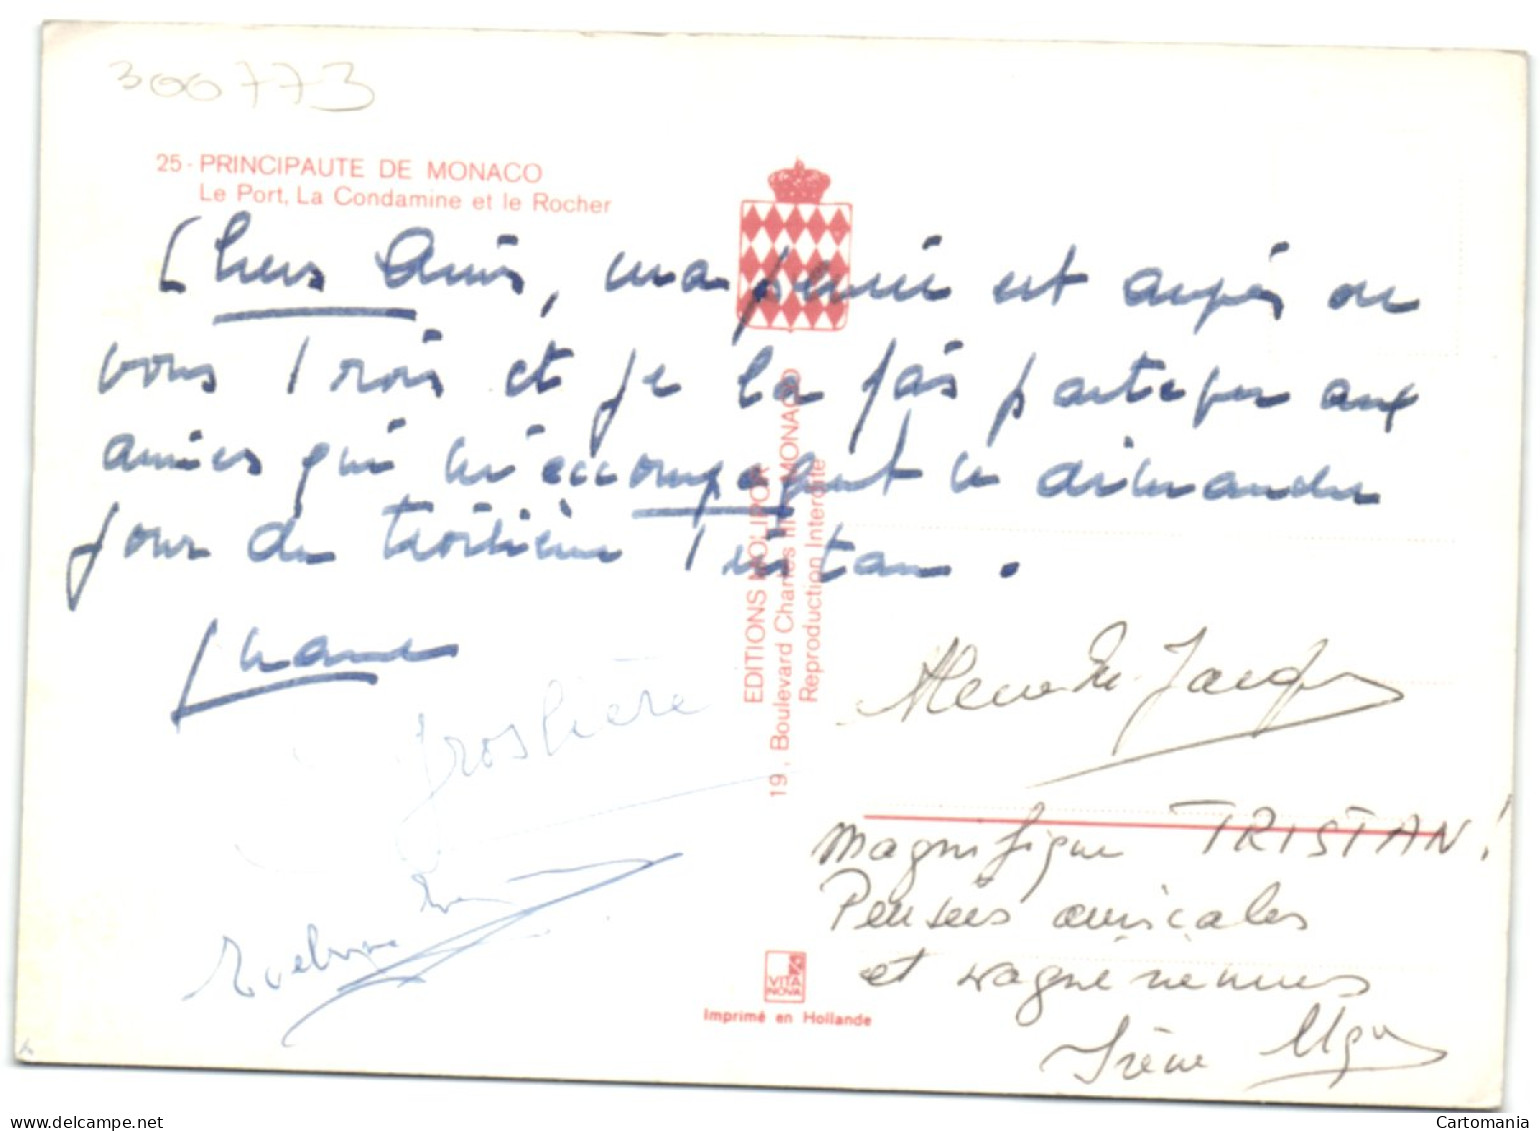 300773
25 - PRINCIPAUTE DE MONACO
Le Port, La Condamine et le Rocher
Chers Amis, ma pensée est auprès de
vous Trois et je la fais partager aux
amies qui m'accompagnent ce dimanche
jour du troisième Tristan.
EDITIONS MOLIPOR
19, Boulevard Charles III - MONACO
Reproduction Interdite
magnifique TRISTAN !
Pensées amicales
et wagneriennes
Irène
VITA
NOVA
Imprimé en Hollande
Cartomania